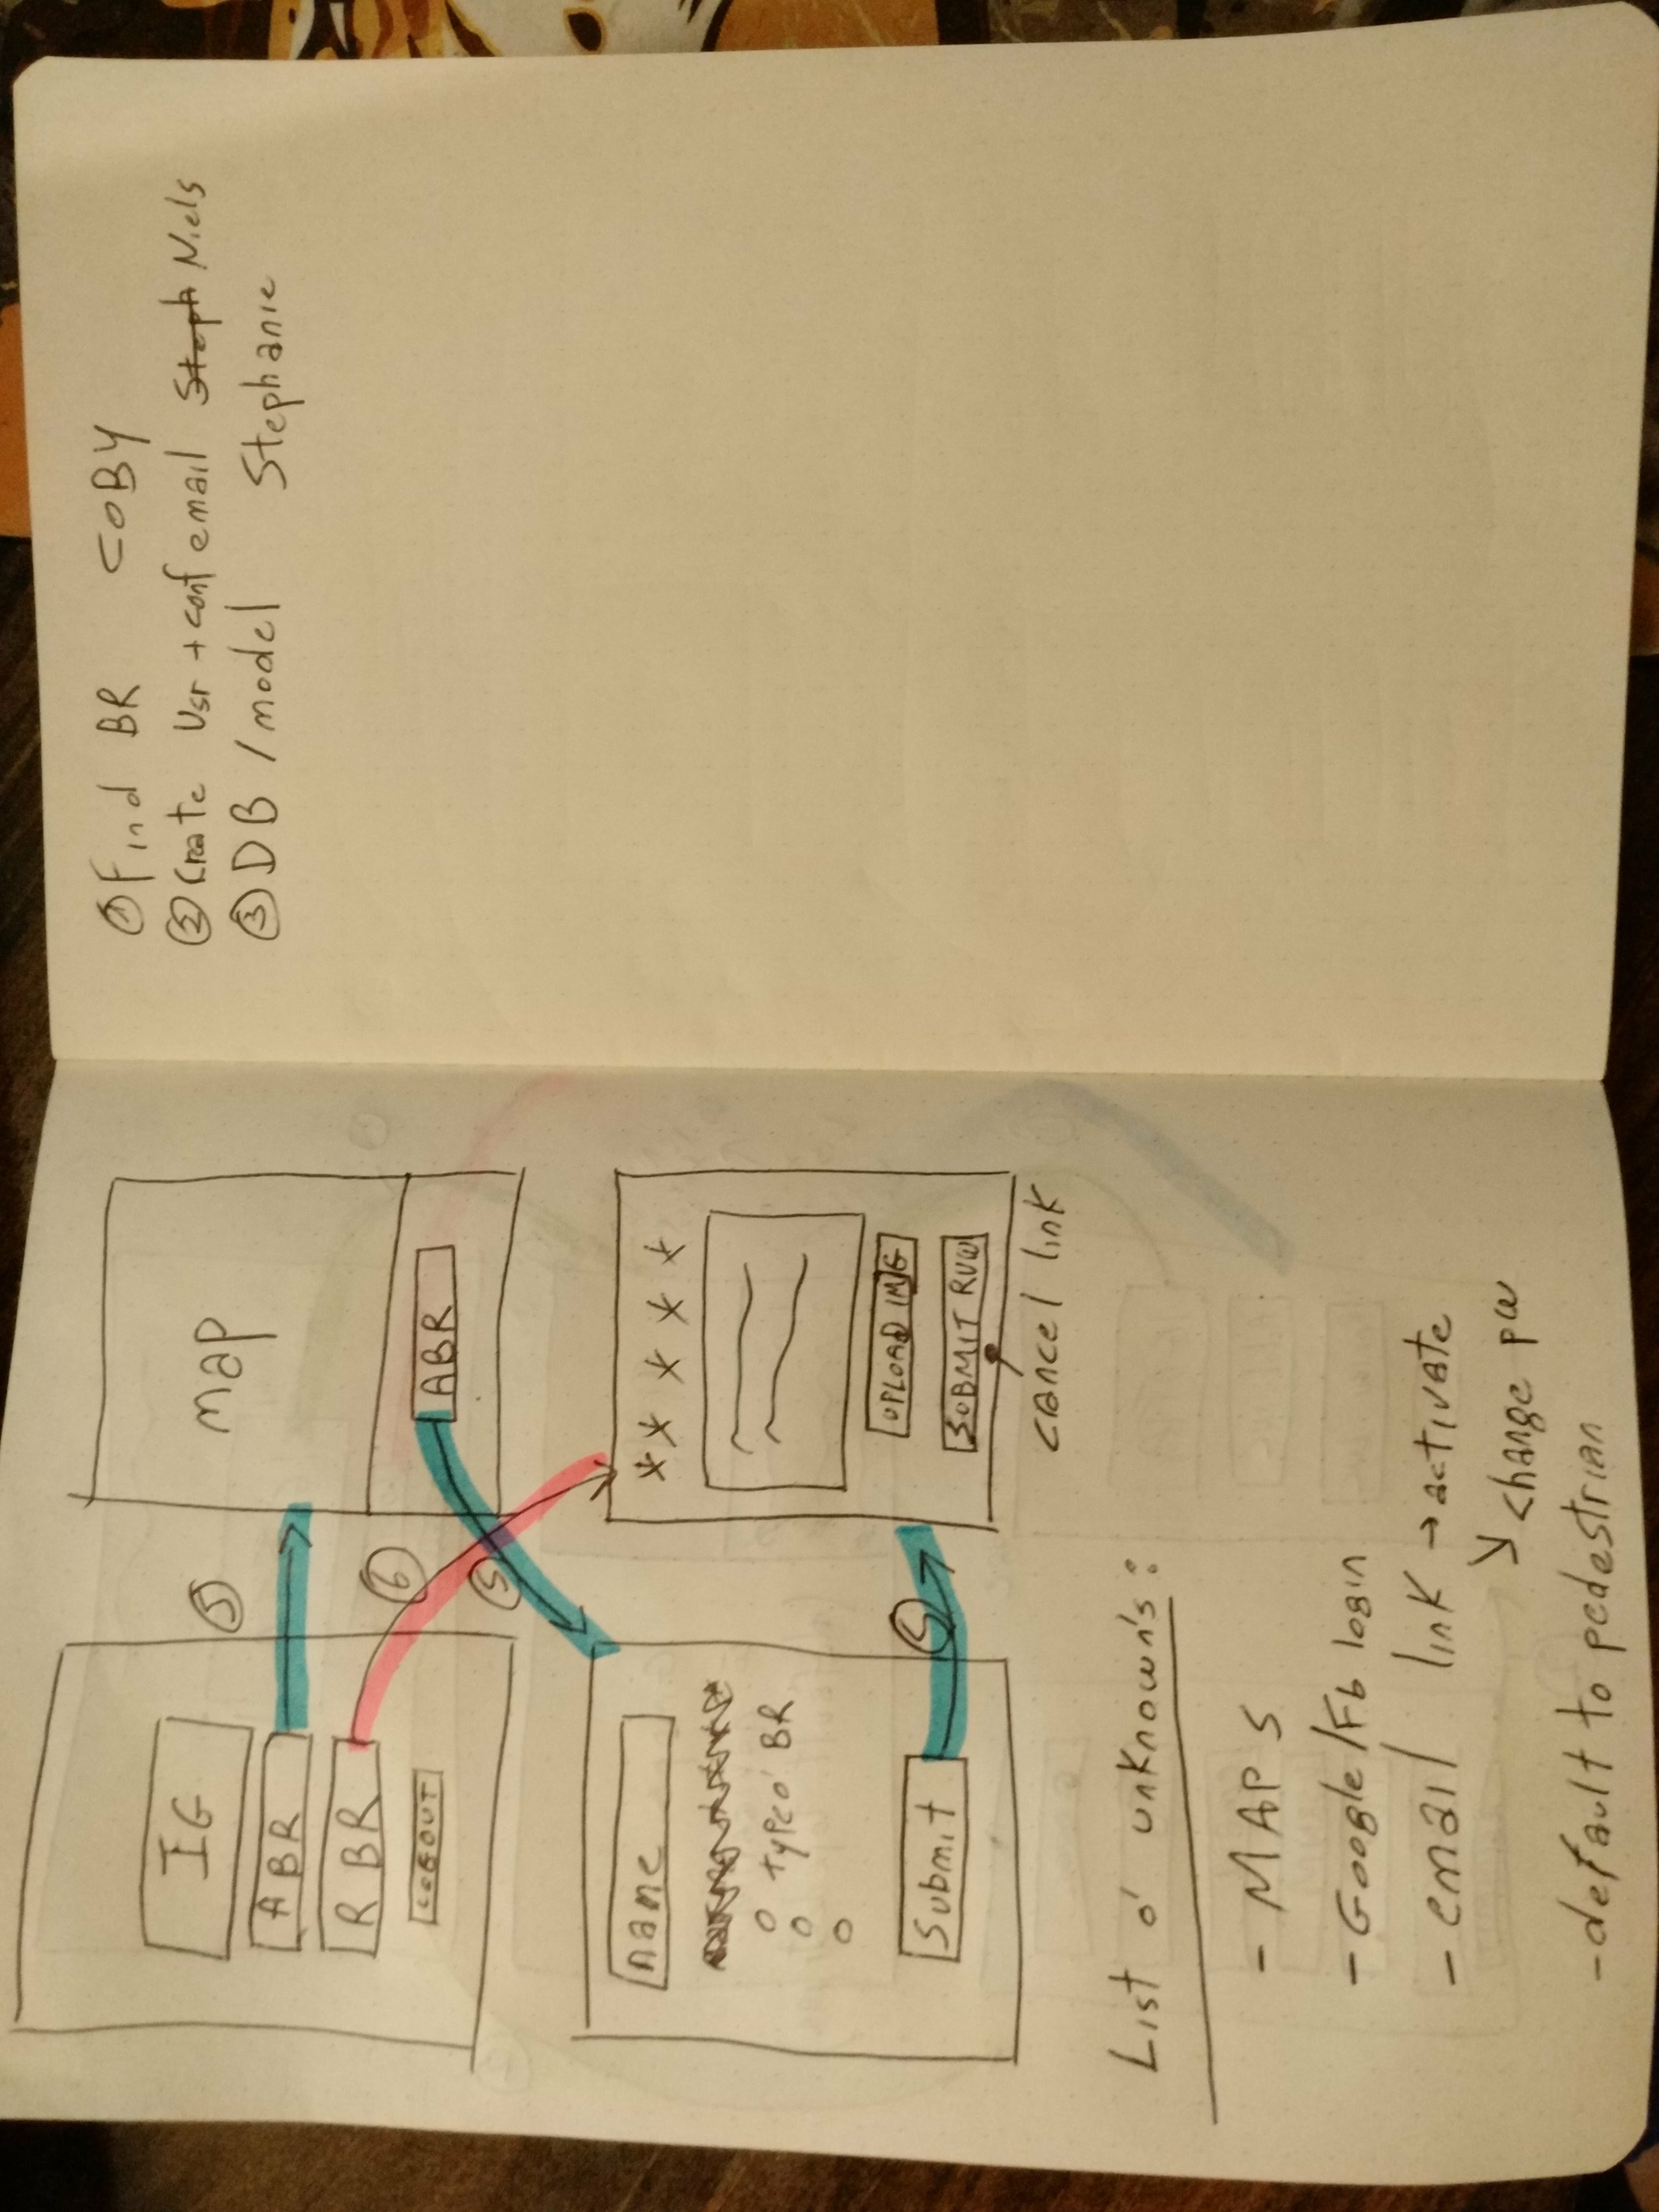 IG
ABR
R BR
LOGOUT
5
6
5
map
ABR
name
o typeo' BR
o
o
Submit
* * * * *
UPLOAD IMG
SUBMIT RVW
cancel link
List o' unknown's:
- MAPS
- Google/Fb login
- email link → activate
↘ change pw
- default to pedestrian
① Find BR COBY
② Create Usr + conf email Steph Niels
③ DB / model Stephanie